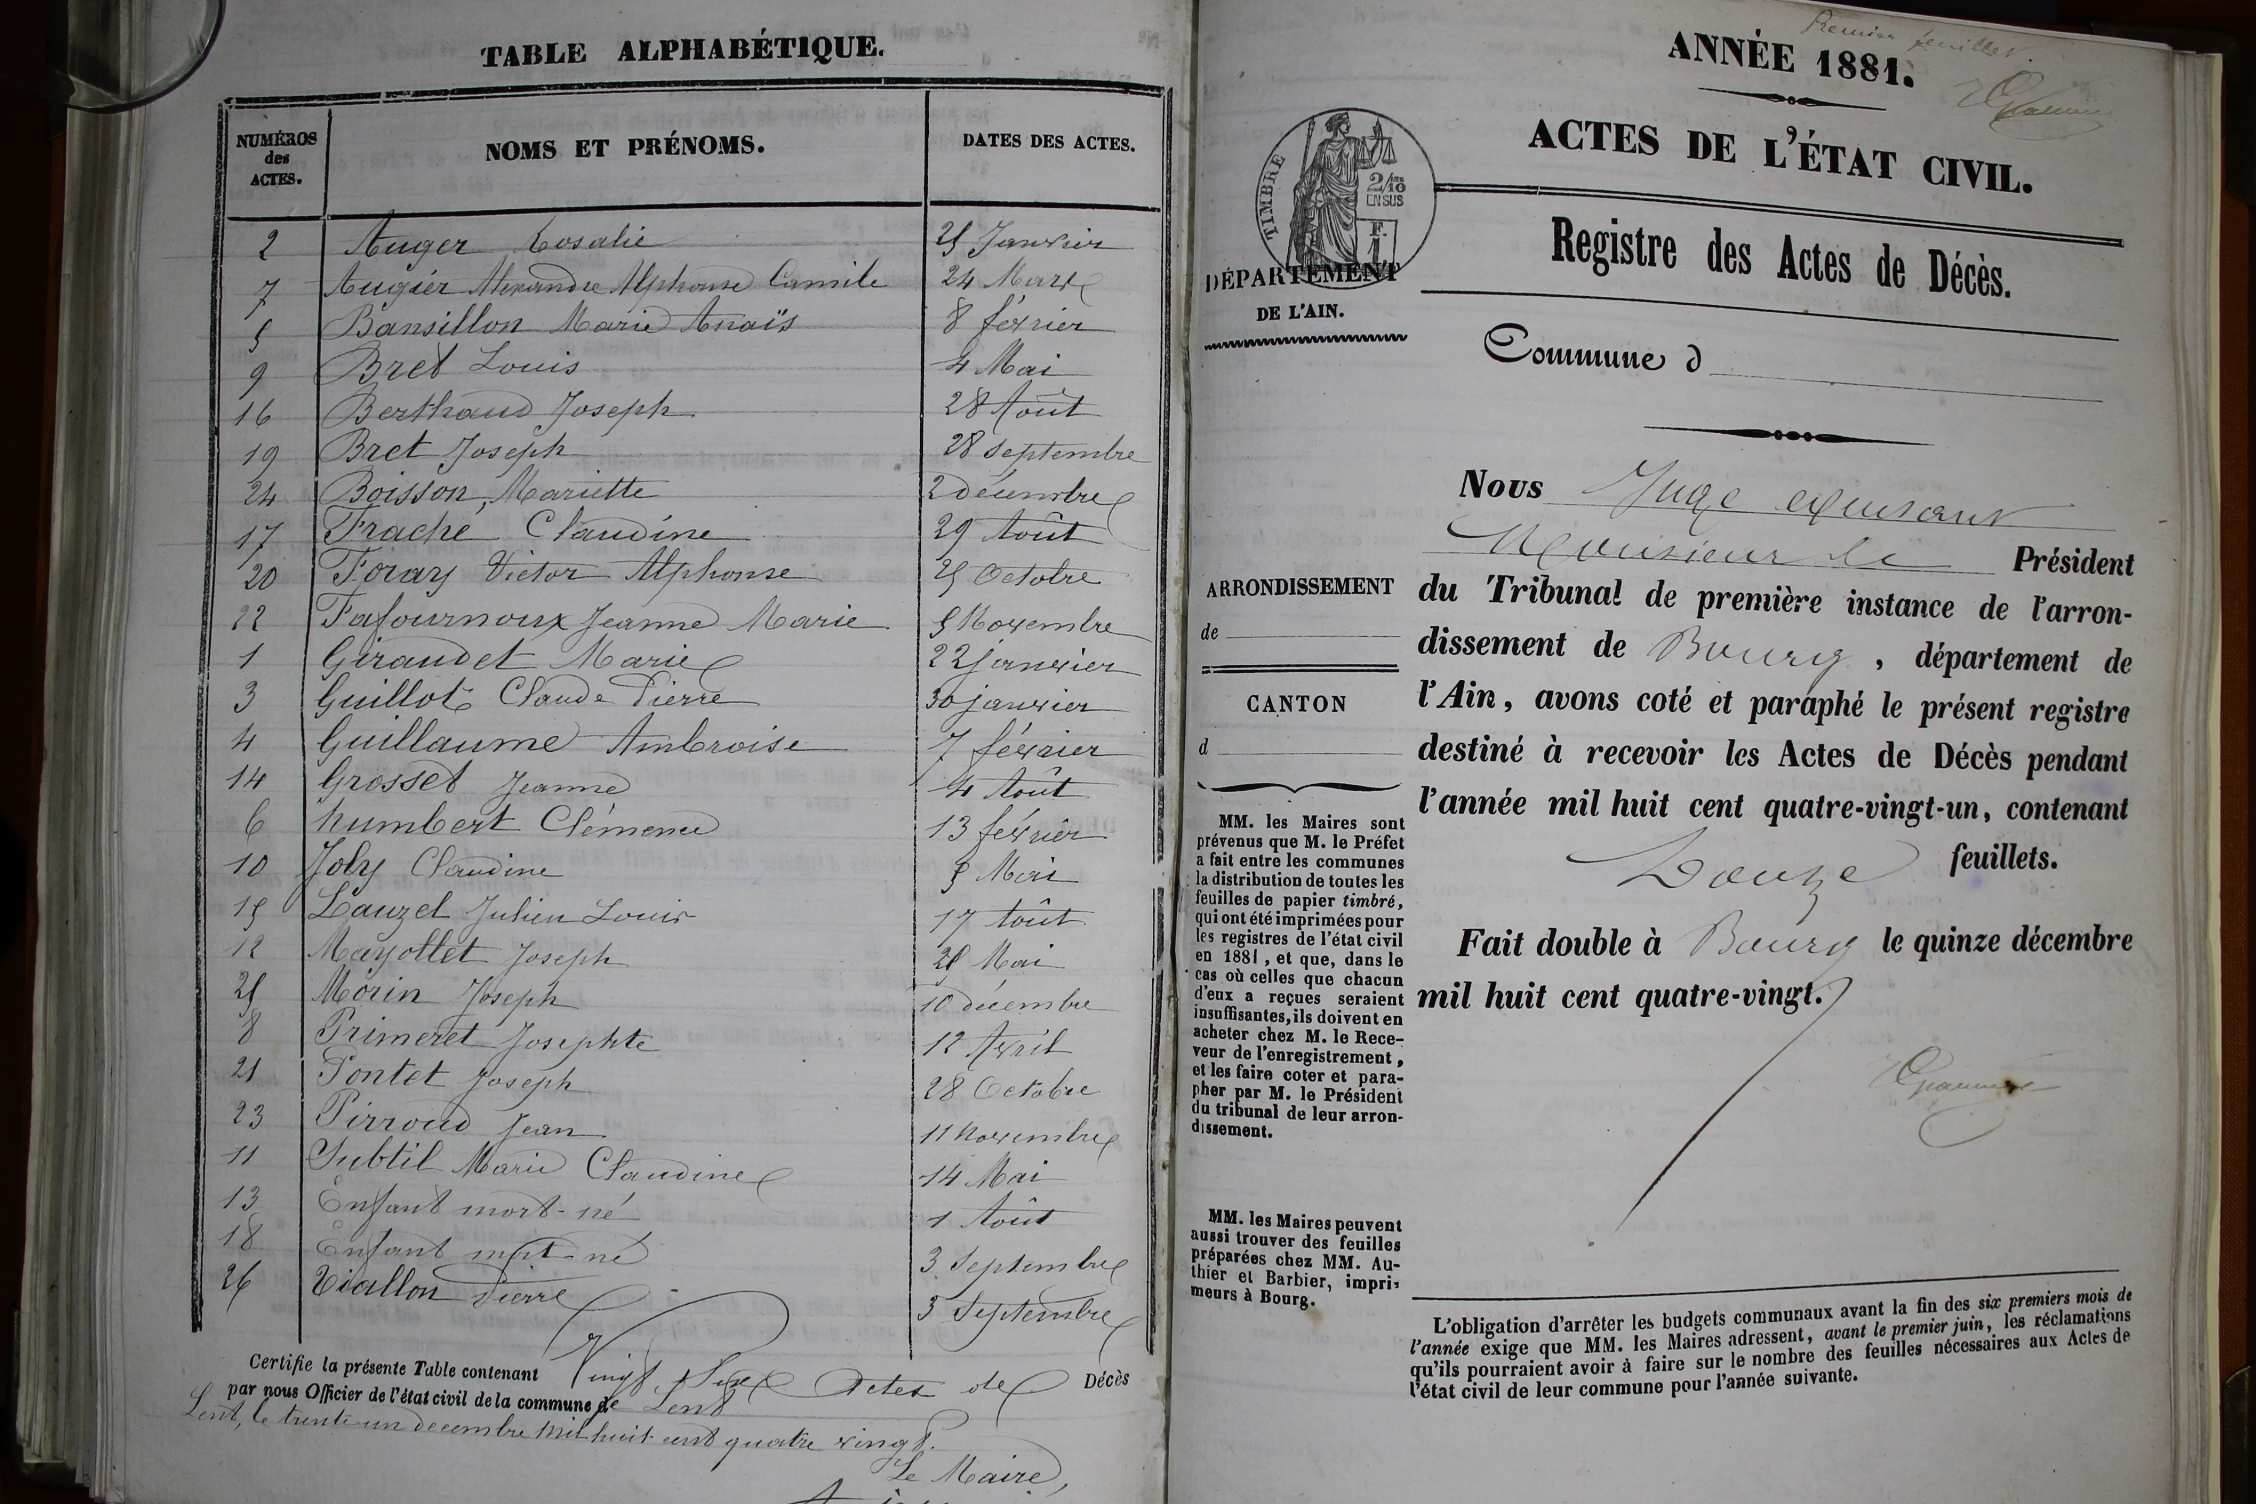 TABLE ALPHABÉTIQUE.
NUMÉROS des ACTES. NOMS ET PRÉNOMS. DATES DES ACTES.
2 Auger Rosalie 25 Janvier
7 Augier Alexandre Alphonse Camile 24 Mars
5 Bansillon Marie Anaïs 8 février
9 Bret Louis 4 Mai
16 Berthaud Joseph 28 Août
19 Bret Joseph 28 septembre
24 Boisson, Mariette 2 décembre
17 Fraché Claudine 29 Août
20 Foray Victor Alphonse 25 Octobre
22 Fafournoux Jeanne Marie 5 Novembre
1 Giraudet Marie 22 janvier
3 Guillot Claude Pierre 30 janvier
4 Guillaume Ambroise 7 février
14 Grosset Jeanne 4 Août
6 humbert Clémence 13 février
10 Joly Claudine 5 Mai
15 Lauzel Julien Louis 17 Août
12 Mayollet Joseph 25 Mai
25 Morin Joseph 10 décembre
8 Primeret Josephte 12 Avril
21 Pontet Joseph 28 Octobre
23 Pirroud Jean 11 novembre
11 Subtil Marie Claudine 14 Mai
13 Enfant mort-né 1 Août
18 Enfant mort-né 3 Septembre
26 Viallon Pierre 3 Septembre
Certifie la présente Table contenant Vingt Six Actes de Décès
par nous Officier de l'état civil de la commune de Lent
Lent, le trente un decembre mil huit cent quatre vingt.
Le Maire,
Premier feuillet.
ANNÉE 1881.
ACTES DE L'ÉTAT CIVIL.
TIMBRE
2/10 EN SUS
1 F.
DÉPARTEMENT
DE L'AIN.
Registre des Actes de Décès.
Commune d
Nous Juge exerçant
Monsieur le Président
du Tribunal de première instance de l'arron-
dissement de Bourg, département de
l'Ain, avons coté et paraphé le présent registre
destiné à recevoir les Actes de Décès pendant
l'année mil huit cent quatre-vingt-un, contenant
Douze feuillets.
Fait double à Bourg le quinze décembre
mil huit cent quatre-vingt.
ARRONDISSEMENT
de
CANTON
d
MM. les Maires sont
prévenus que M. le Préfet
a fait entre les communes
la distribution de toutes les
feuilles de papier timbré,
qui ont été imprimées pour
les registres de l'état civil
en 1881, et que, dans le
cas où celles que chacun
d'eux a reçues seraient
insuffisantes, ils doivent en
acheter chez M. le Rece-
veur de l'enregistrement,
et les faire coter et para-
pher par M. le Président
du tribunal de leur arron-
dissement.
MM. les Maires peuvent
aussi trouver des feuilles
préparées chez MM. Au-
thier et Barbier, impri-
meurs à Bourg.
L'obligation d'arrêter les budgets communaux avant la fin des six premiers mois de
l'année exige que MM. les Maires adressent, avant le premier juin, les réclamations
qu'ils pourraient avoir à faire sur le nombre des feuilles nécessaires aux Actes de
l'état civil de leur commune pour l'année suivante.